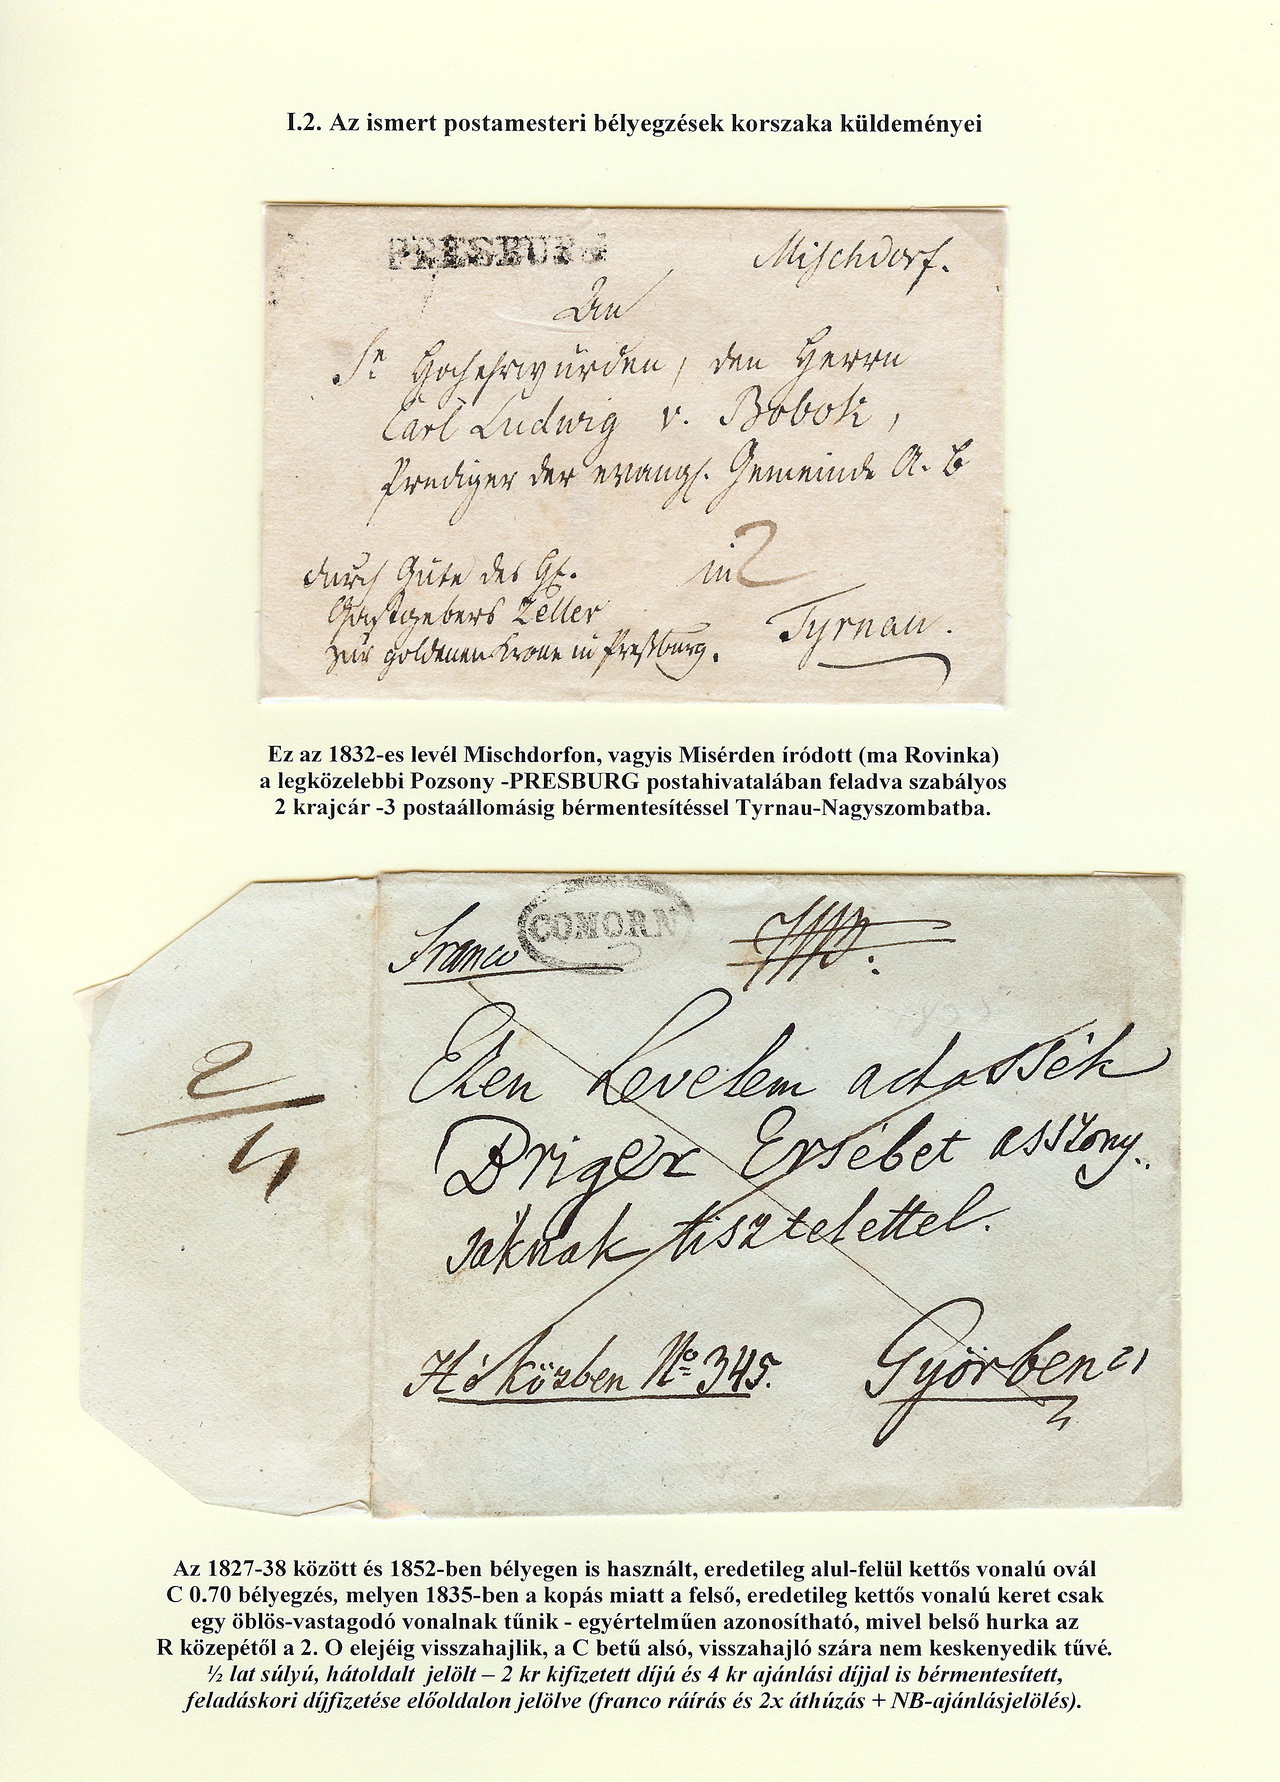 I.2. Az ismert postamesteri bélyegzések korszaka küldeményei
PRESBURG
Mischdorf.
An
Sr Hochehrwürden, den Herrn
Carl Ludwig v. Bobok,
Prediger der evangl. Gemeinde A. B
in 2
durch Güte des H.
Gastgebers Zeller
zur goldenen Krone in Preßburg.
Tyrnau.
Ez az 1832-es levél Mischdorfon, vagyis Misérden íródott (ma Rovinka)
a legközelebbi Pozsony -PRESBURG postahivatalában feladva szabályos
2 krajcár -3 postaállomásig bérmentesítéssel Tyrnau-Nagyszombatba.
COMORN
Franco
2
4
Ezen Levelem adassék
Driger Ersébet asszony..
sáknak tisztelettel.
Hó közben No 345.
Györben
Az 1827-38 között és 1852-ben bélyegen is használt, eredetileg alul-felül kettős vonalú ovál
C 0.70 bélyegzés, melyen 1835-ben a kopás miatt a felső, eredetileg kettős vonalú keret csak
egy öblös-vastagodó vonalnak tűnik - egyértelműen azonosítható, mivel belső hurka az
R közepétől a 2. O elejéig visszahajlik, a C betű alsó, visszahajló szára nem keskenyedik tűvé.
½ lat súlyú, hátoldalt jelölt – 2 kr kifizetett díjú és 4 kr ajánlási díjjal is bérmentesített,
feladáskori díjfizetése előoldalon jelölve (franco ráírás és 2x áthúzás + NB-ajánlásjelölés).